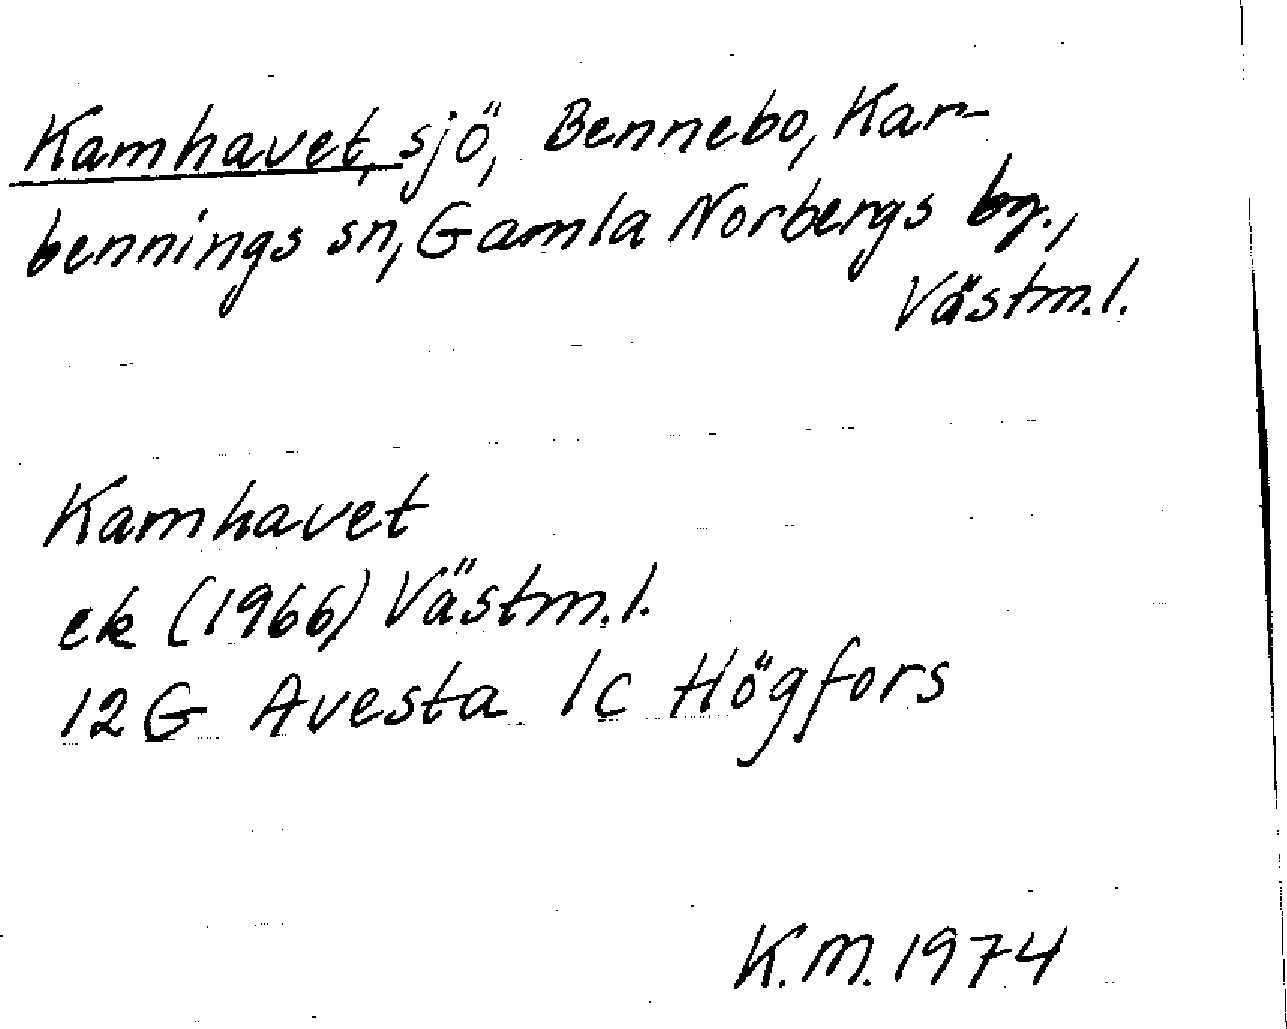 Kamhavet, sjö, Bennebo, Kar-
bennings sn, Gamla Norbergs bg.,
Västm.l.
Kamhavet
ek (1966) Västm.l.
12G Avesta 1c Högfors
K.M. 1974